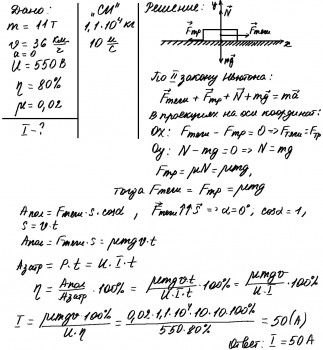 Дано: "СИ" Решение:
m = 11т 1,1·10⁴ кг
v = 36 км/ч 10 м/с
a = 0
U = 550 В
η = 80%
μ = 0,02
I - ?
y N⃗
F⃗тр F⃗тяги
mg⃗
По II закону Ньютона:
F⃗тяги + F⃗тр + N⃗ + mg⃗ = ma⃗
В проекциях на оси координат:
Ox: Fтяги - Fтр = 0 => Fтяги = Fтр
Oy: N - mg = 0 => N = mg
Fтр = μN = μmg,
тогда Fтяги = Fтр = μmg
Aпол = Fтяги·s·cosα, F⃗тяги ↑↑ s⃗ => α = 0°, cosα = 1,
s = v·t
Aпол = Fтяги·s = μmgv·t
Aзатр = P·t = U·I·t
η = Aпол/Aзатр · 100% = μmgv·t/U·I·t · 100% = μmgv/U·I · 100%
I = μmgv·100%/U·η = 0,02·1,1·10⁴·10·10·100%/550·80% = 50 (А)
Ответ: I = 50А